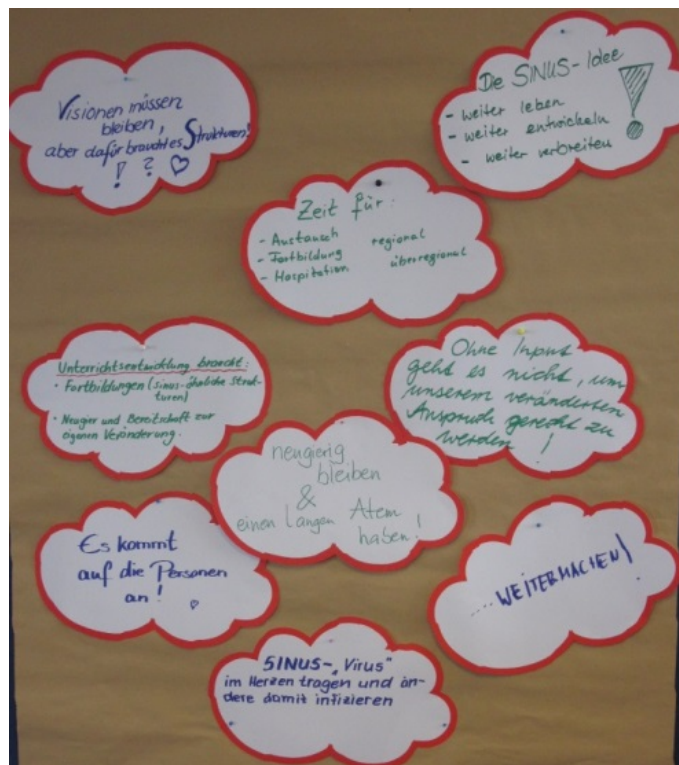 Visionen müssen
bleiben,
aber dafür braucht es Strukturen!
! ? ♡
Die SINUS-Idee
- weiter leben
- weiter entwickeln
- weiter verbreiten
!
Zeit für:
- Austausch regional
- Fortbildung
- Hospitation überregional
Unterrichtsentwicklung braucht:
• Fortbildungen (sinus-ähnliche Struk-
turen)
• Neugier und Bereitschaft zur
eigenen Veränderung.
Ohne Input
geht es nicht, um
unserem veränderten
Anspruch gerecht zu
werden !
neugierig
bleiben
&
einen langen Atem
haben!
Es kommt
auf die Personen
an!
....WEITERMACHEN!
SINUS-„Virus“
im Herzen tragen und an-
dere damit infizieren